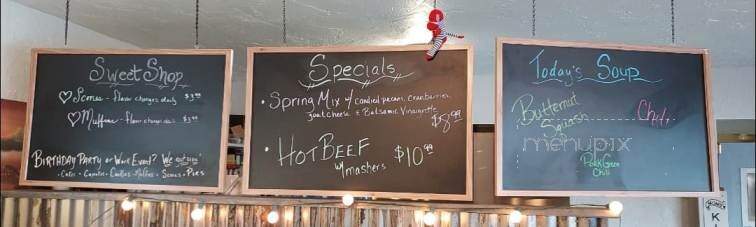 Sweet Shop
Scones - flavor changes daily $3.99
Muffins - Flavor changes daily $3.99
BIRTHDAY PARTY or Work Event? We cater!
Cakes - Cupcakes - Cookies - Muffins - Scones - Pies
Specials
• Spring Mix w/ candied pecans, cranberries,
goat cheese & Balsamic Vinaigrette
$8.99
• HOT BEEF
w/ mashers $10.99
Today's Soup
Butternut
Squash
Chili
menupix
Pork Green
Chili